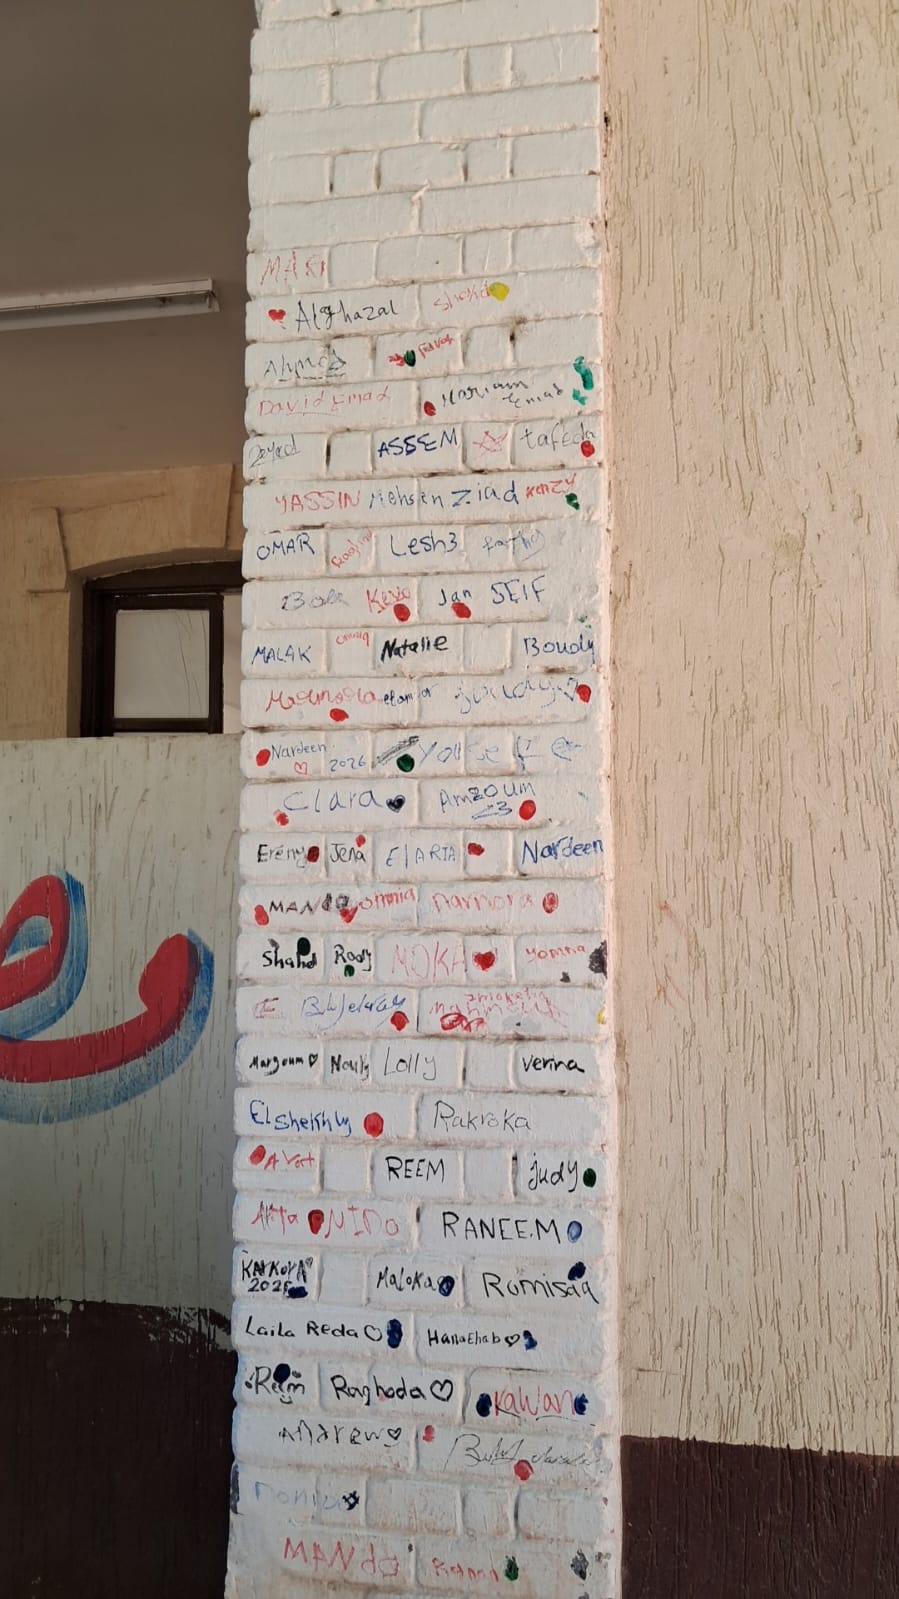 MARI
Alghazal Shahd
Ahmed
David Emad Mariam Emad
Zeyad ASSEM tafeda
YASSIN Mohsen Ziad KENZY
OMAR Lesh3 fathy
Bola Kevo Jan SEIF
MALAK Natalie Boudy
Marmora
Nardeen 2026
Clara Amzoum <3
Ereny Jena ElARIA Nardeen
MANdo omnia narmora
Shahd Rody MOKA yomna
Margoum Nouly Lolly verina
ElSheikhly Rakroka
REEM judy
MIDO RANEEM
KARKORA 2026 Maloka Romisaa
Laila Reda Hana Ehab
Reem Raghoda RAWAN
Andrew
monia
MANdo